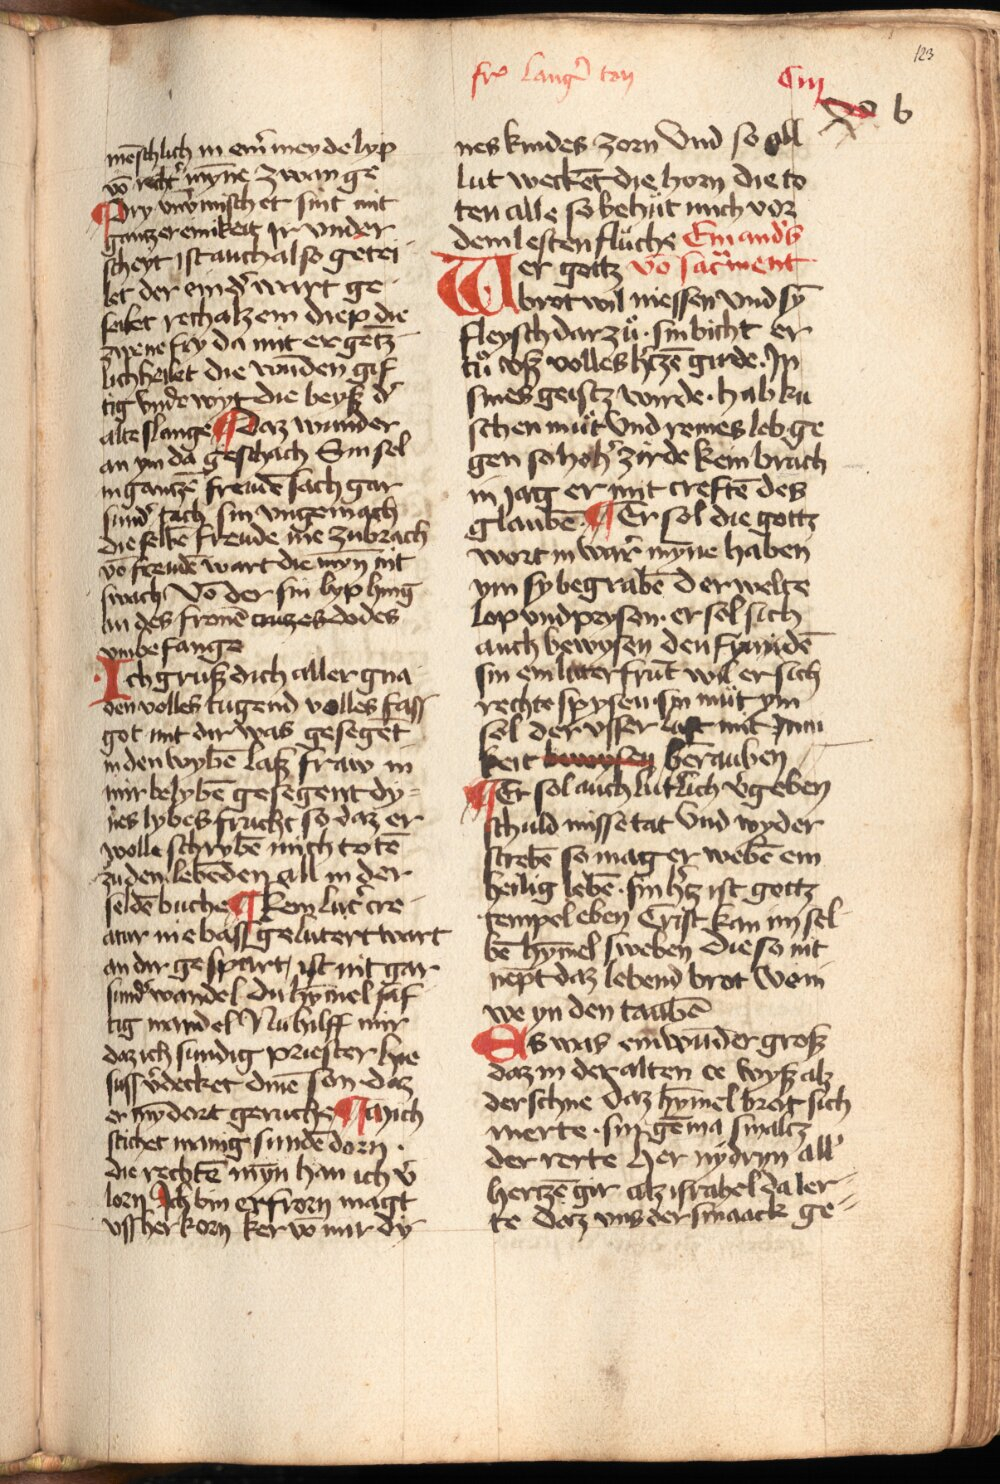 123
fr͂ lang͛ ton
Ciiij
b
mēschlich in em͛ meyde lyp
vō recht͛ mȳne zwange
¶Dry vn͛mischet sint mit
gantzer einikeit Ir vnder
scheyt ist auch also getei
let der eind͛ wirt ge
seilet rech alz ein diep die
zwene fry da mit er gētz
lich heilet die wūden gif
tig vnde wyt die beyß d͛
alte slange ¶Daz wunder
an ym da geschach Sin sel
in gantzē freudē sach gar
sund͛ tach sin vngemach
die selbē freude nie zubrach
vō freudē wart die mȳn nit
swach Vō der sin lyp hing
an des fronē cruzes dodes
vmbefange
Ich gruß dich aller gna
den volles tugend volles fass
got mit dir was geseget
in den wybē laß fraw in
mir belybē gesegent dy=
nes lybes frucht so daz er
wolle schrybē mich totē
zů den lebēden all in der
seldē buche ¶kein lut͛ cre
atur nie bass gelutert wart
an dir gespart / ist nit gar
sund͛ wandel du hȳmel saf
tig mandel Nu hilff mir
daz ich sundig priester hye
suss v͛decket dinē son daz
er mȳ dort geruche ¶Mich
stichet manig sundē dorn
die rechtē mȳn han ich v͛
lorn Ich bin erfrorn magt
vsserkorn ker vō mir dy
nes kindes zorn Vnd so all
lut weckēt die horn die to
ten alle so behüt mich vor
dem lesten flůche Ein and͛s
Wer gottz vō sacr͛ment
brot wil niessen vnd sȳ
fleysch darzů · sin bicht er
tů vß volles h͛tzē girde · In
sines geistz wirde · hab ku
schen müt Vnd reines leb ge
gen so hoh͛ zirde kein bruch
in jag er mit creftē des
glaubē ¶Er sol die gottz
wort in war͛ mȳne haben
ym sy begrabē der welte
lop vnd prysen · er sol sich
auch bewysen den frūdē
sin ein luter frūt wil er sich
rechte spysen · syn müt ym
sol der vsser last mit Inni
keit berauben
¶Er sol auch lut͛lich v͛geben
schuld missetat Vnd wyder
strebē so mag er webē ein
heilig lebē · sin h͛tz ist gottz
tempel eben Crist kan im sel
bē hȳmel sweben Die so nit
nēpt daz lebend brot Wem
we yn den taubē
Es was ein wūder groß
daz in der alten ee wyß alz
der schne daz hȳmel brot sich
merte · sin gēma smaltz
der rerte Her nydryn all͛
hertzē gir alz israhel da ler=
te daz vns der smaack ge=